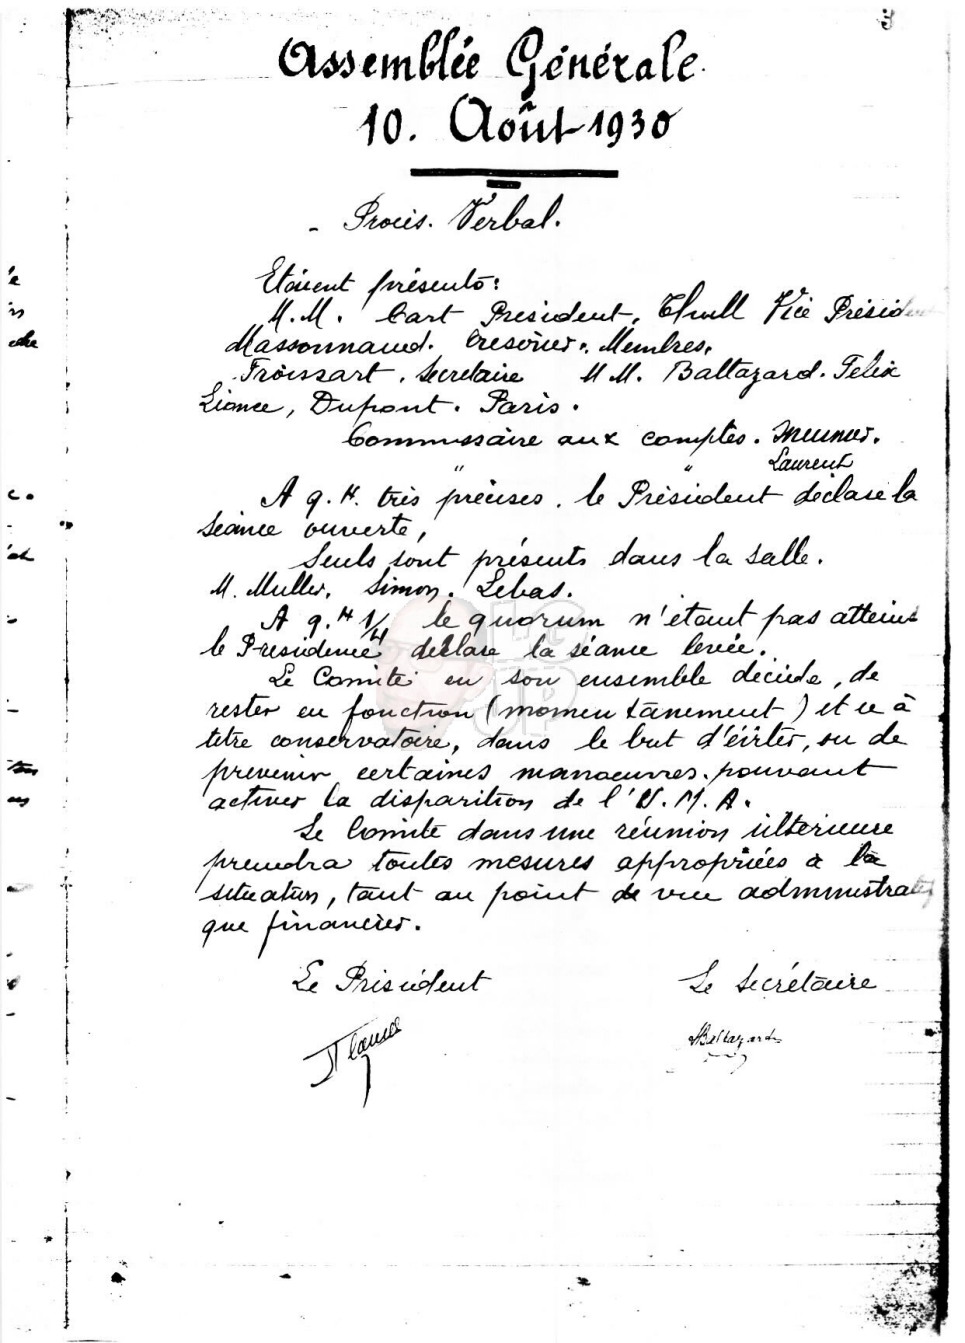 3
Assemblée Générale
10. Août 1930
- Procès. Verbal.
Etaient présents:
M.M. Cart Président, Thull Vice Président
Massonnaud. Trésorier. Membres.
Froissart. Secrétaire M M. Baltazard. Felix
Lionce, Dupont. Paris.
Commissaire aux comptes. Meunier.
" " Laurent
A 9.H. très précises. le Président déclare la
séance ouverte,
Seuls sont présents dans la salle.
M. Muller, Simon. Lebas.
A 9.H 1/4 le quorum n'étant pas atteint
le Présidence déclare la séance levée.
Le Comité en son ensemble décide, de
rester en fonction (momentanément) et ce à
titre conservatoire, dans le but d'éviter, ou de
prévenir certaines manoeuvres. pouvant
activer la disparition de l'U.M.A.
Le Comité dans une réunion ultérieure
prendra toutes mesures appropriées à la
situation, tant au point de vue administratif
que financier.
Le Président Le Secrétaire
Baltazard